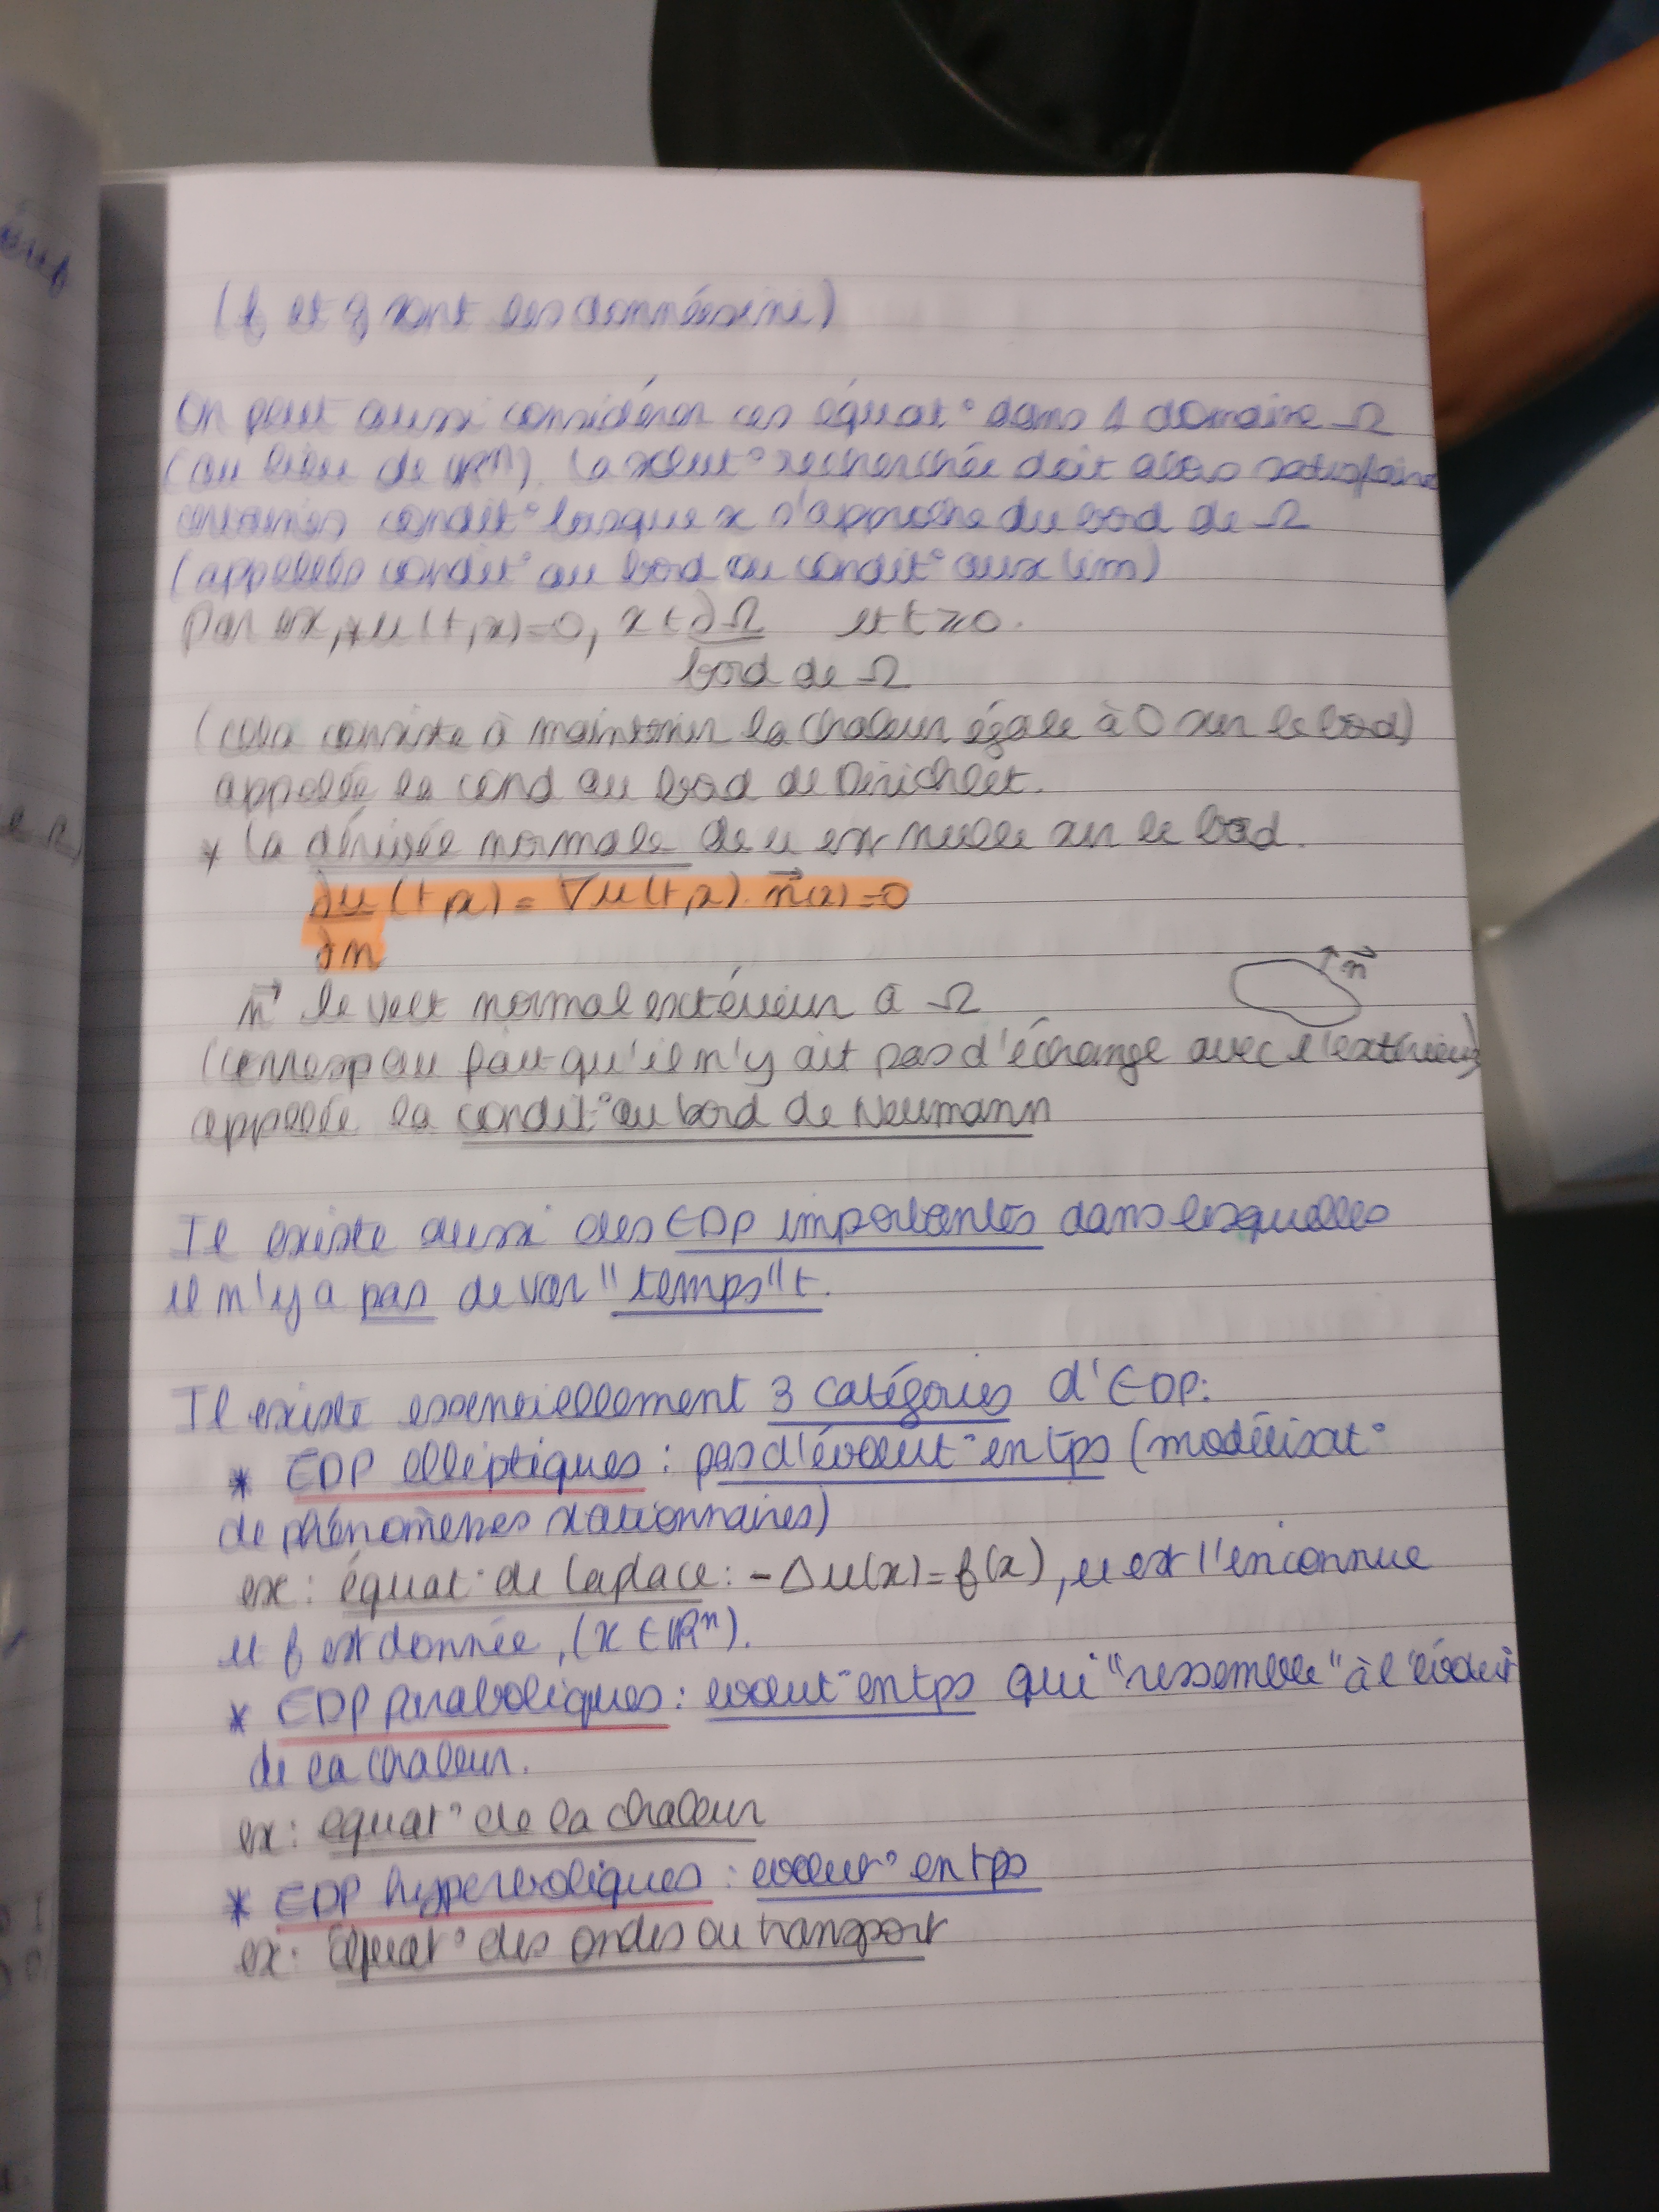 (f et g sont les données ini)
On peut aussi considérer ces équat° dans 1 domaine Ω
(au lieu de ℝⁿ). La solut° recherchée doit alors satisfaire
certaines condit° lorsque x s'approche du bord de Ω
(appelées condit° au bord ou condit° aux lim)
Par ex, * u(t,x)=0, x ∈ ∂Ω et t ≥ 0.
bord de Ω
(cela consiste à maintenir la chaleur égale à 0 sur le bord)
appelée la cond au bord de Dirichlet.
* La dérivée normale de u est nulle sur le bord.
∂u/∂n (t,x) = ∇u(t,x). n⃗(x)=0
n⃗
n⃗ le vect normal extérieur à Ω
(corresp au fait qu'il n'y ait pas d'échange avec l'extérieur)
appellée la condit° au bord de Neumann
Il existe aussi des EDP importantes dans lesquelles
il n'y a pas de var "temps" t.
Il existe essentiellement 3 catégories d'EDP:
* EDP elliptiques : pas d'évolut° en tps (modélisat°
de phénomènes stationnaires)
ex: équat° de Laplace: -Δu(x)=f(x), u est l'inconnue
et f est donnée, (x ∈ ℝⁿ).
* EDP paraboliques: evolut° en tps qui "ressemble" à l'évolut°
de la chaleur.
ex: équat° de la chaleur
* EDP hyperboliques : evolut° en tps
ex: équat° des ondes ou transport